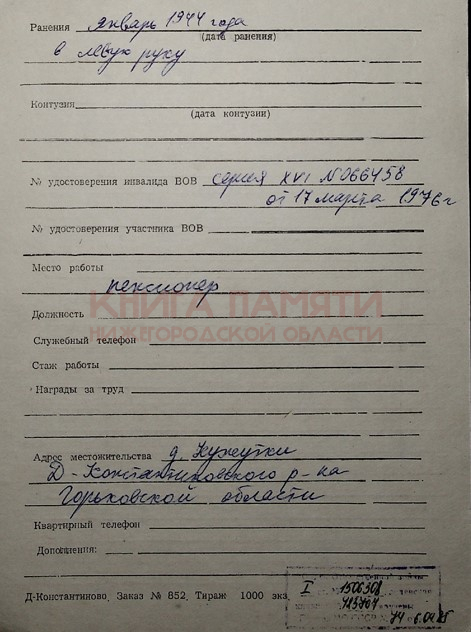 Ранения январь 1944 года
(дата ранения)
в левую руку
Контузия
(дата контузии)
№ удостоверения инвалида ВОВ серия XVI №066458
от 17 марта 1976 г
№ удостоверения участника ВОВ
Место работы
пенсионер
КНИГА ПАМЯТИ
НИЖЕГОРОДСКОЙ ОБЛАСТИ
Должность
Служебный телефон
Стаж работы
Награды за труд
Адрес местожительства д. Кужутки
Д-Константиновского р-на
Горьковской области
Квартирный телефон
Дополнения:
Д-Константиново, Заказ № 852, Тираж 1000 экз.
I 1506308